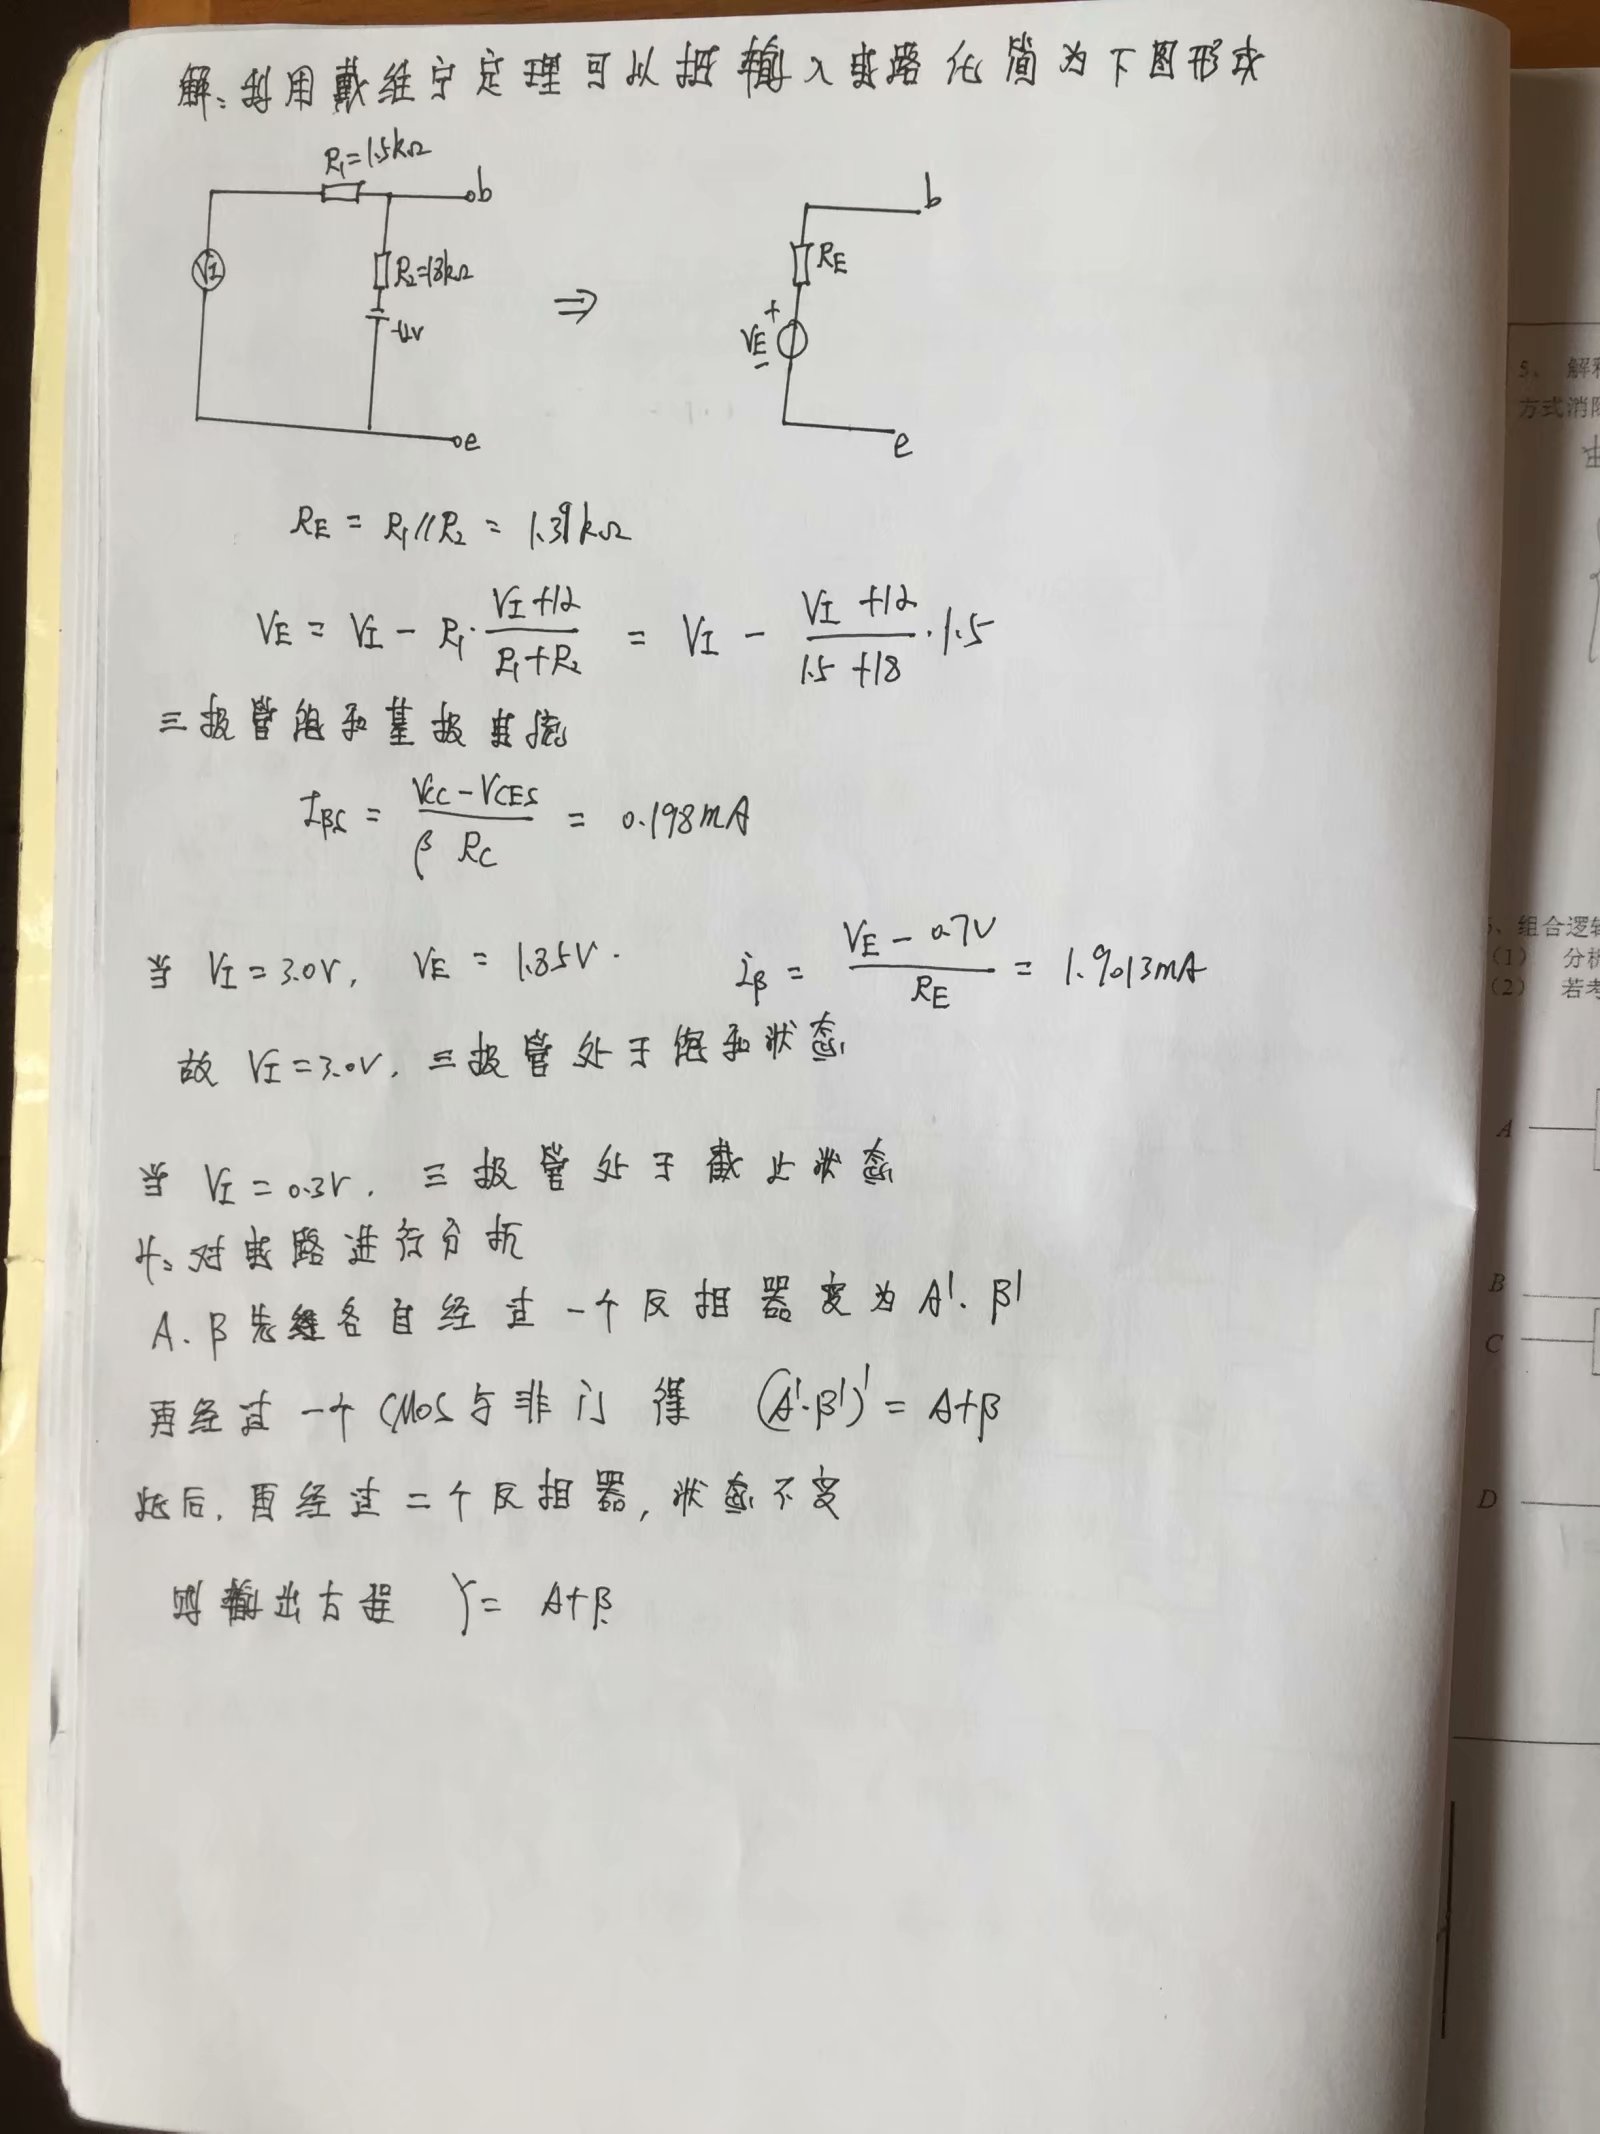 解:利用戴维宁定理可以把输入电路化简为下图形式
R₁=1.5kΩ
b
b
VI
R₂=18kΩ
RE
⇒
+
VE
-
e
e
RE = R₁//R₂ = 1.39kΩ
VE = VI - R₁· (VI+12)/(R₁+R₂) = VI - (VI+12)/(1.5+18) ·1.5
三极管饱和基极电流
IBS = (VCC-VCES)/(β RC) = 0.198mA
当 VI=3.0V, VE = 1.85V. iB = (VE-0.7V)/RE = 1.9013mA
故 VI=3.0V, 三极管处于饱和状态
当 VI=0.3V, 三极管处于截止状态
4、对电路进行分析
A、B先经各自经过一个反相器变为A'、B'
再经过一个CMOS与非门 得 (A'·B')' = A+B
此后,再经过二个反相器,状态不变
则输出方程 Y= A+B
5、 解释
方式消除
5、组合逻辑
(1) 分析
(2) 若考
A
B
C
D